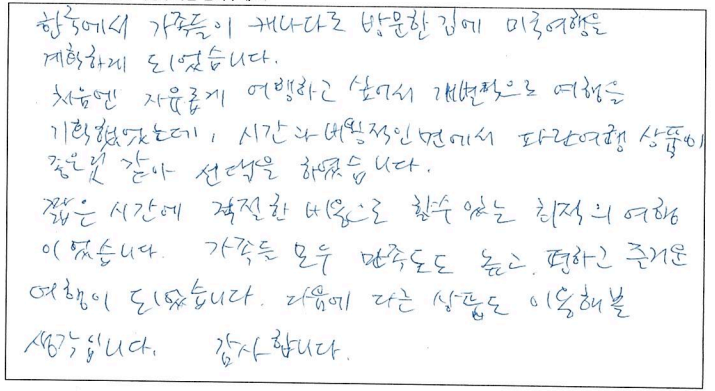 한국에서 가족들이 캐나다로 방문한 김에 미국여행을
계획하게 되었습니다.
처음엔 자유롭게 여행하고 싶어서 개별적으로 여행을
기획했었는데, 시간과 비용적인면에서 파란여행 상품이
좋은것 같아 선택을 하였습니다.
짧은 시간에 적절한 비용으로 할수있는 최적의 여행
이었습니다. 가족들 모두 만족도도 높고, 편하고 즐거운
여행이 되었습니다. 다음에 다른 상품도 이용해볼
생각입니다. 감사합니다.